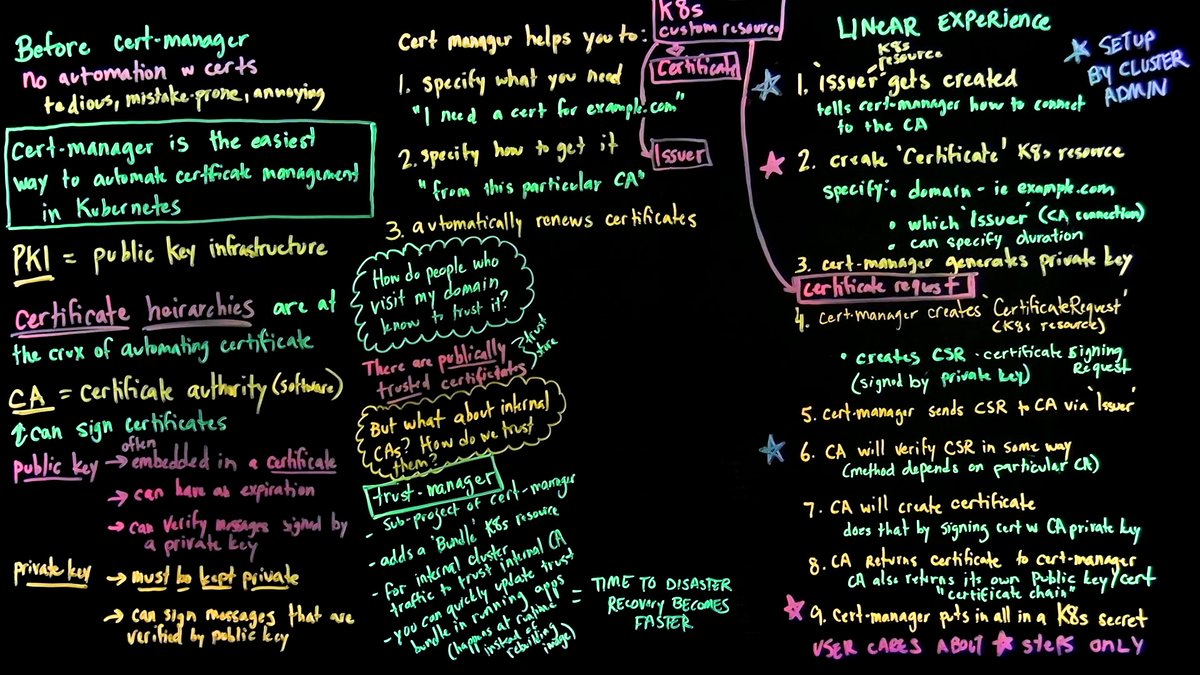 Before cert-manager
no automation w certs
tedious, mistake-prone, annoying
cert-manager is the easiest
way to automate certificate management
in Kubernetes
PKI = public key infrastructure
certificate heirarchies are at
the crux of automating certificate
CA = certificate authority (software)
↑ can sign certificates
public key → often embedded in a certificate
→ can have an expiration
→ can verify messages signed by
a private key
private key → must be kept private
→ can sign messages that are
verified by public key
Cert manager helps you to:
1. specify what you need
"I need a cert for example.com"
2. specify how to get it
"from this particular CA"
3. automatically renews certificates
K8s
custom resource
Certificate
Issuer
certificate request
How do people who
visit my domain
know to trust it?
There are publically
trusted certificates
trust
store
But what about internal
CAs? How do we trust
them?
trust-manager
- sub-project of cert-manager
- adds a 'Bundle' K8s resource
- for internal cluster
traffic to trust internal CA
- you can quickly update trust
bundle in running apps
(happens at runtime
instead of
rebuilding
image)
= TIME TO DISASTER
RECOVERY BECOMES
FASTER
LINEAR EXPERIENCE
K8s
resource
1. 'issuer' gets created
tells cert-manager how to connect
to the CA
☆ SETUP
BY CLUSTER
ADMIN
2. create 'Certificate' K8s resource
specify: • domain - ie example.com
• which 'Issuer' (CA connection)
• can specify duration
3. cert-manager generates private key
4. cert-manager creates 'CertificateRequest'
(K8s resource)
• creates CSR - certificate signing
Request
(signed by private key)
5. cert-manager sends CSR to CA via 'Issuer'
6. CA will verify CSR in some way
(method depends on particular CA)
7. CA will create certificate
does that by signing cert w CA private key
8. CA Returns certificate to cert-manager
CA also returns its own public key/cert
"certificate chain"
9. Cert-manager puts in all in a K8s secret
USER CARES ABOUT ☆ steps ONLY